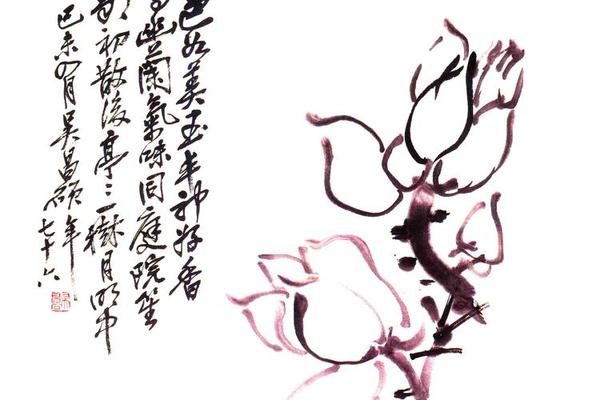 色如美玉丰神好香
幽蘭氣味同庭院笙
初散後亭〻一樹月明中
己未四月吳昌碩年
七十六